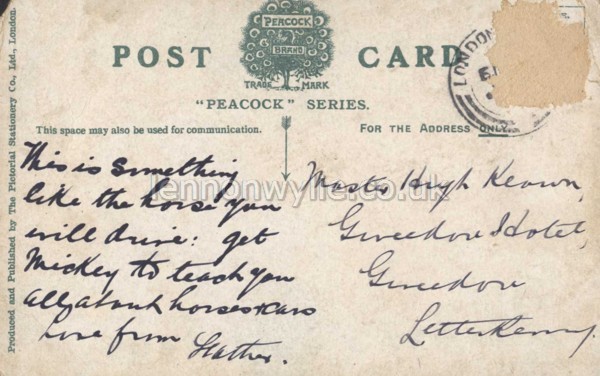 PEACOCK
BRAND
TRADE MARK
POST CARD
"PEACOCK" SERIES.
This space may also be used for communication.
FOR THE ADDRESS ONLY.
LONDON
Produced and Published by The Pictorial Stationery Co., Ltd., London.
This is something
like the horse you
will drive: get
Mickey to teach you
all about horses & cars
Love from Father.
Master Hugh Keown,
Gweedore Hotel,
Gweedore
Letterkenny.
lennonwylie.co.uk